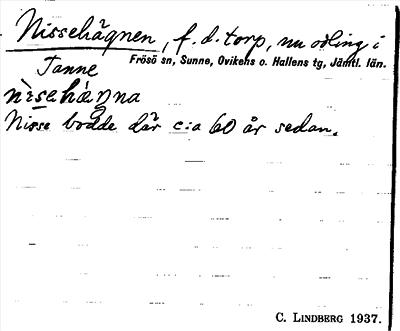 Nissehägnen, f. d. torp, nu odling i
Tanne
Frösö sn, Sunne, Ovikens o. Hallens tg, Jämtl. län.
nìsehàŋna
Nisse bodde där c:a 60 år sedan.
C. LINDBERG 1937.